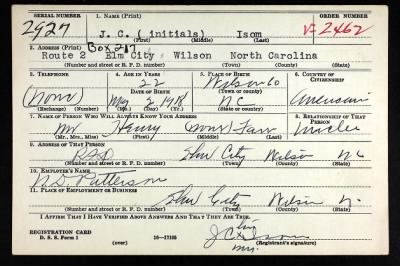 SERIAL NUMBER 1. NAME (Print) ORDER NUMBER
2927 J. C. ( initials) Isom V-2462
(First) (Middle) (Last)
2. ADDRESS (Print) Box 217
Route 2 Elm City Wilson North Carolina
(Number and street or R. F. D. number) (Town) (County) (State)
3. TELEPHONE 4. AGE IN YEARS 5. PLACE OF BIRTH 6. COUNTRY OF CITIZENSHIP
22 Wilson Co
DATE OF BIRTH (Town or county)
(None) May 2 1918 NC American
(Exchange) (Number) (Mo.) (Day) (Yr.) (State or country)
7. NAME OF PERSON WHO WILL ALWAYS KNOW YOUR ADDRESS 8. RELATIONSHIP OF THAT PERSON
Mr Henry (None) Uncle
(Mr., Mrs., Miss) (First) (Middle) (Last)
9. ADDRESS OF THAT PERSON
RFD Elm City Wilson NC
(Number and street or R. F. D. number) (Town) (County) (State)
10. EMPLOYER'S NAME
Patterson
11. PLACE OF EMPLOYMENT OR BUSINESS
Elm City Wilson N.
(Number and street or R. F. D. number) (Town) (County) (State)
I AFFIRM THAT I HAVE VERIFIED ABOVE ANSWERS AND THAT THEY ARE TRUE.
REGISTRATION CARD his
D. S. S. Form 1 (over) 16—17105 J C X Isom
(Registrant's signature)